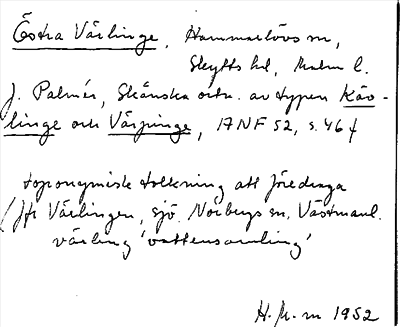 Östra Värlinge, Hammarlövs sn,
Skytts hd, Malm. l.
J. Palmér, Skånska ortn. av typen Käv-
linge och Värpinge, i ANF 52, s. 46 f
toponymisk tolkning att föredraga
(jfr Värlingen, sjö, Norbergs sn, Västmanl.
värling 'vattensamling'
1952